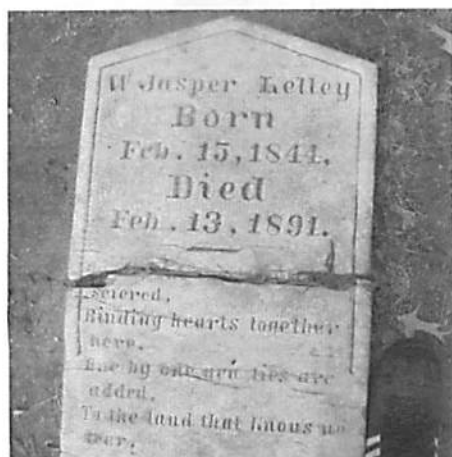 W. Jasper Kelley
Born
Feb. 15, 1844.
Died
Feb. 13, 1891.
severed,
Binding hearts together
here.
One by one new ties are
added,
To the land that knows no